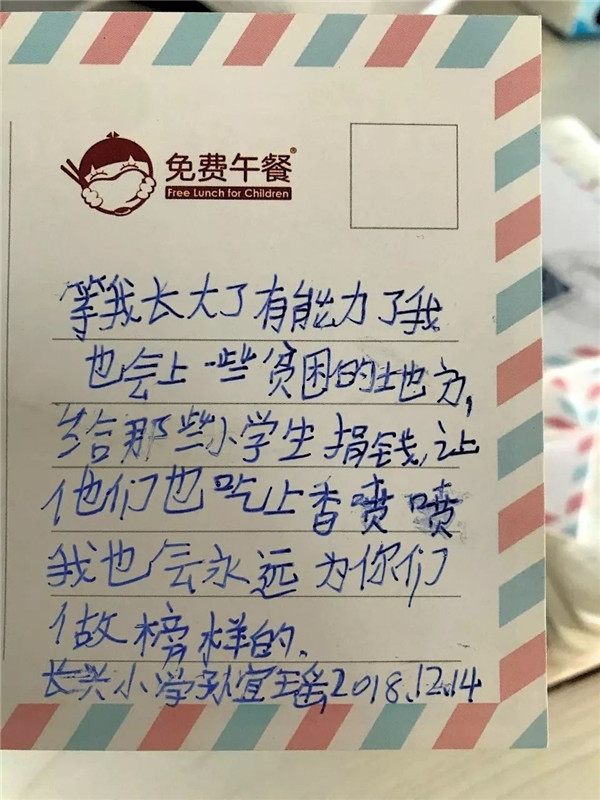 免费午餐®
Free Lunch for Children
等我长大了有能力了我
也会上一些贫困的地方,
给那些小学生捐钱,让
他们也吃上香喷喷
我也会永远为你们
做榜样的.
长兴小学孙宜瑶2018.12.14